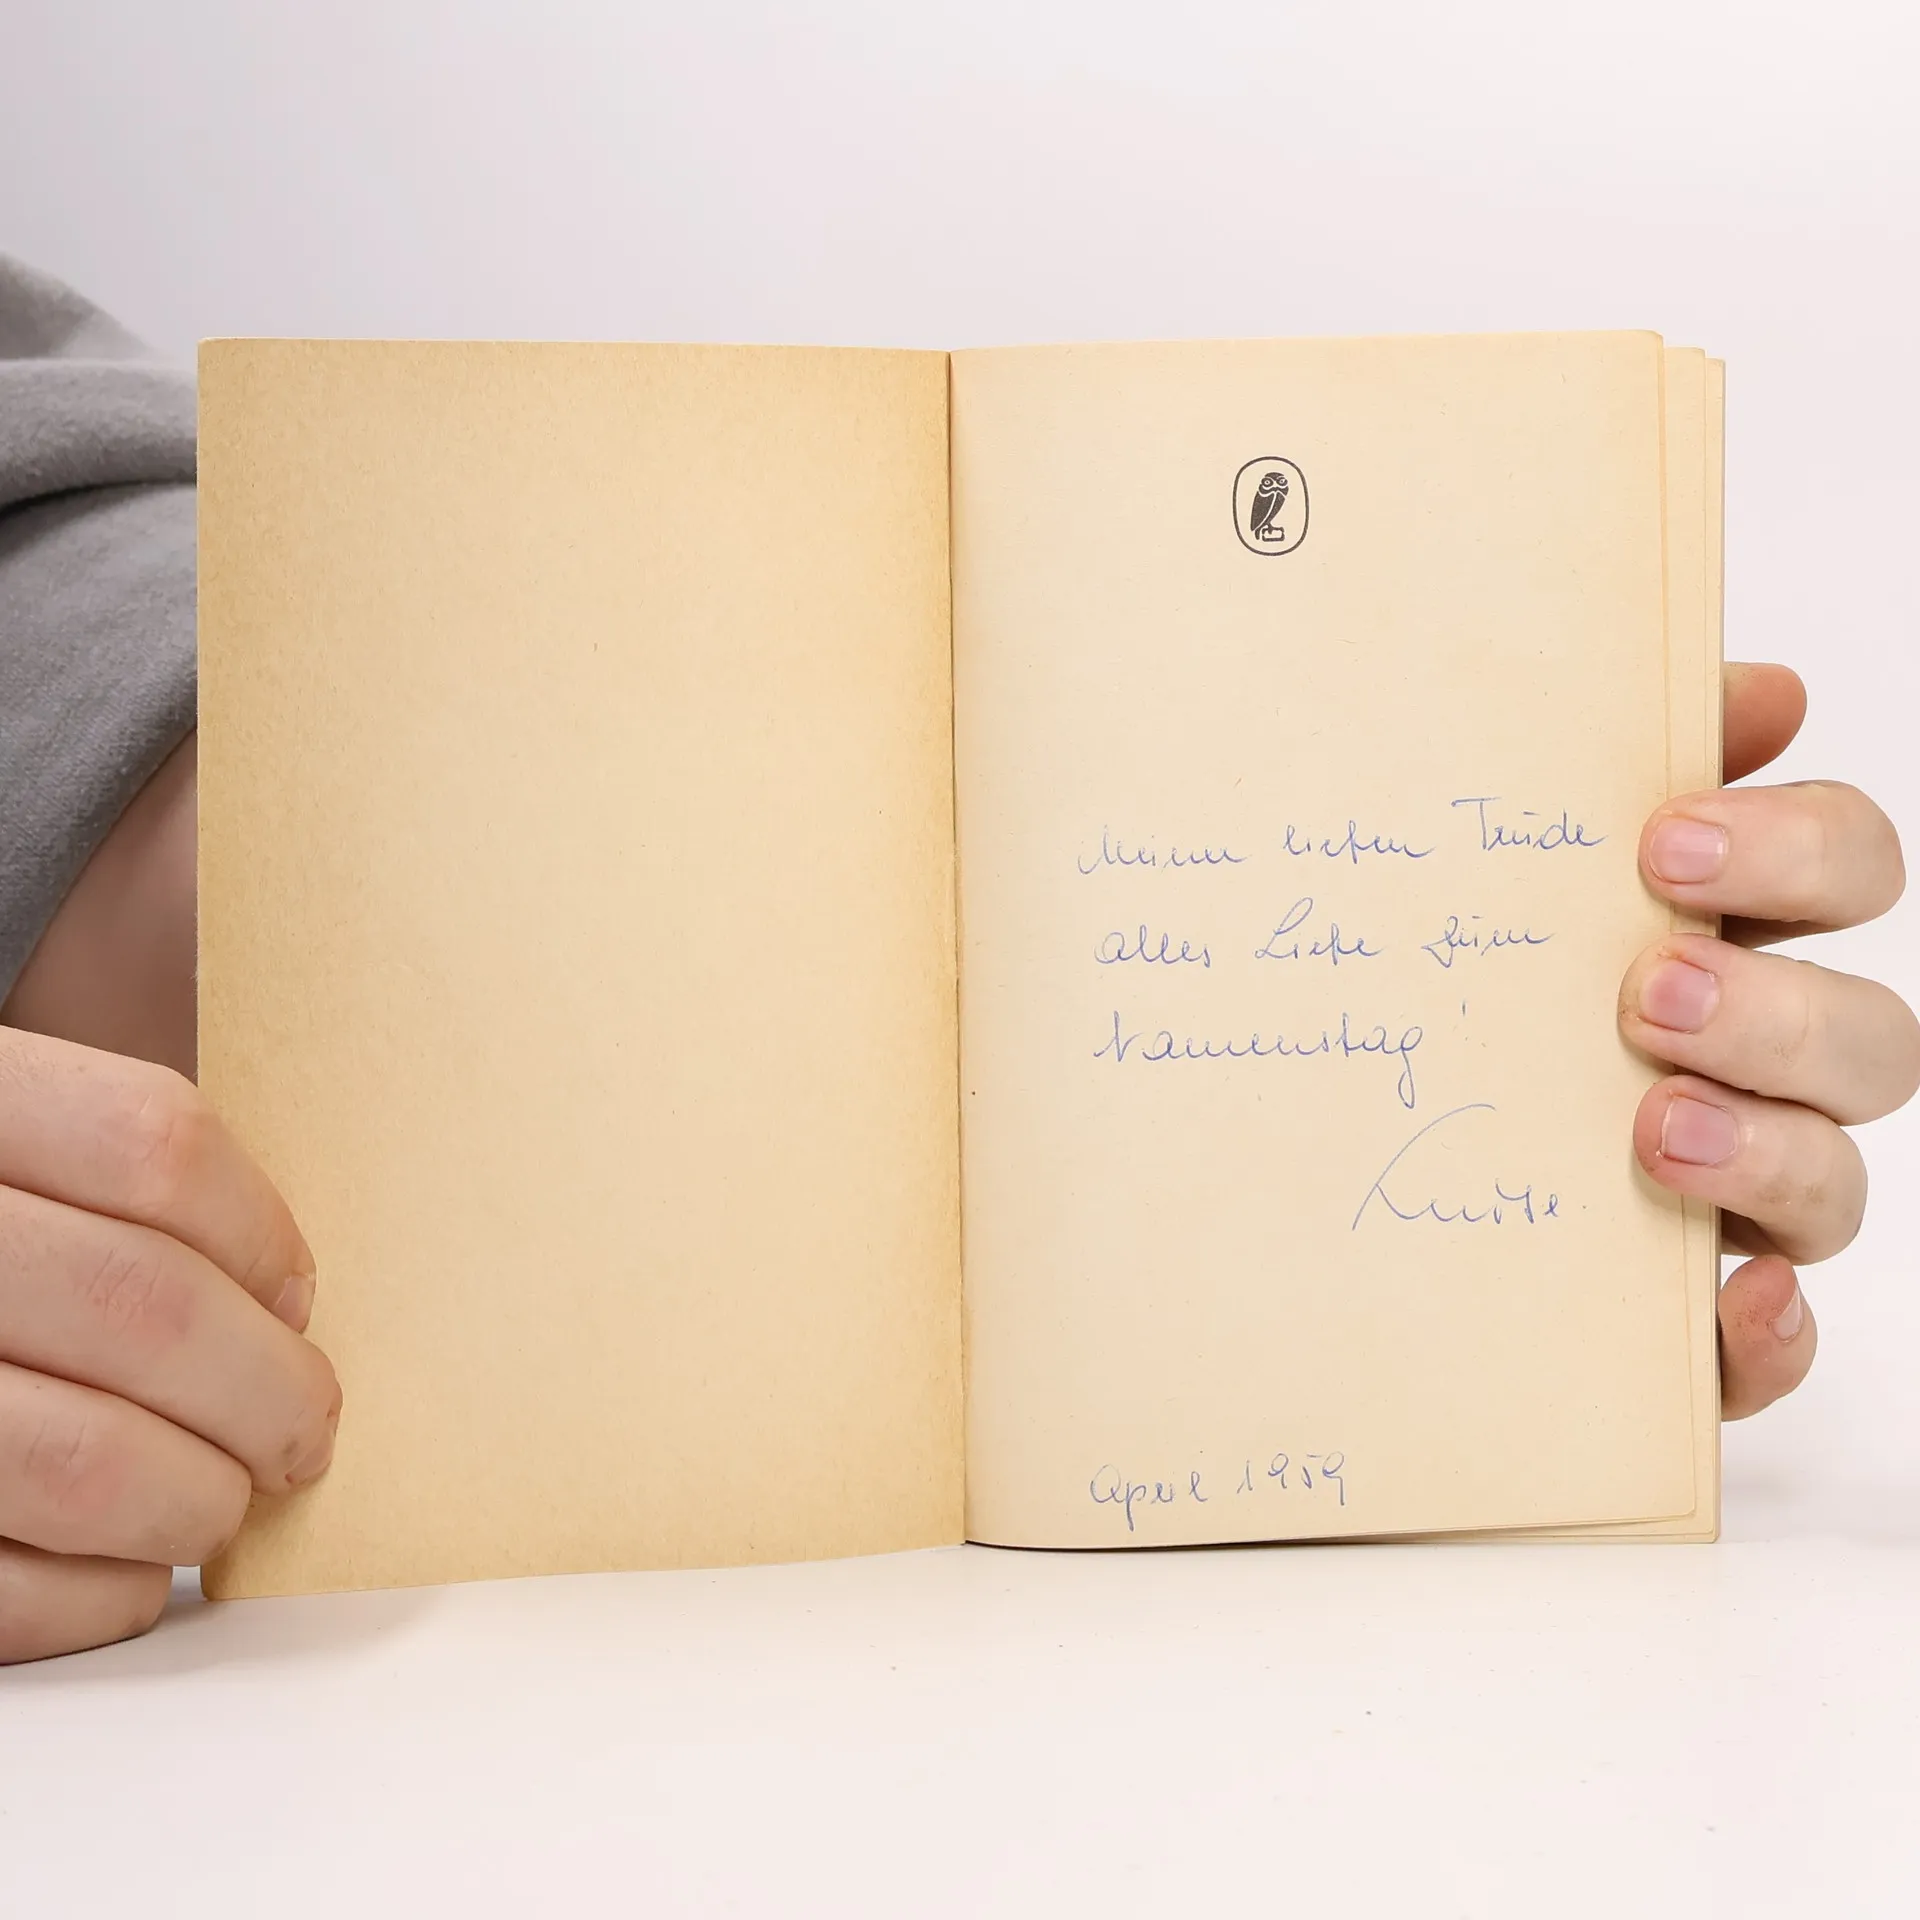 Meiner lieben Trude
alles Liebe zum
Namenstag!
April 1959